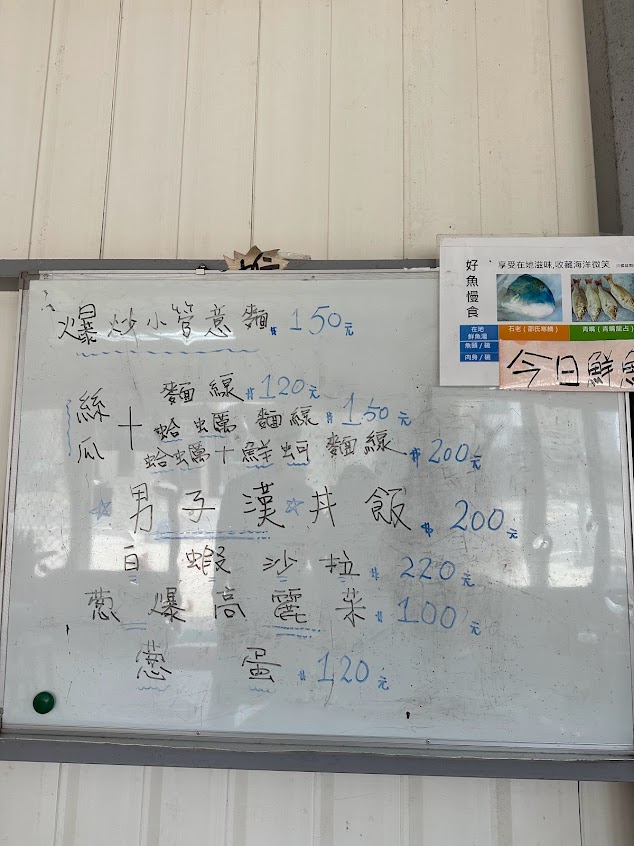 爆炒小管意麵 $150元
絲瓜 + 麵線 $120元
蛤蠣 麵線 $150元
蛤蠣+鮮蚵 麵線 $200元
☆男子漢☆丼飯 $200元
白蝦沙拉 $220元
蔥爆高麗菜 $100元
蔥蛋 $120元
好魚慢食
享受在地滋味,收藏海洋微笑
在地
鮮魚湯
石老(邵氏寒鯛)
青嘴(青嘴龍占)
魚頭/碗
肉身/碗
今日鮮魚